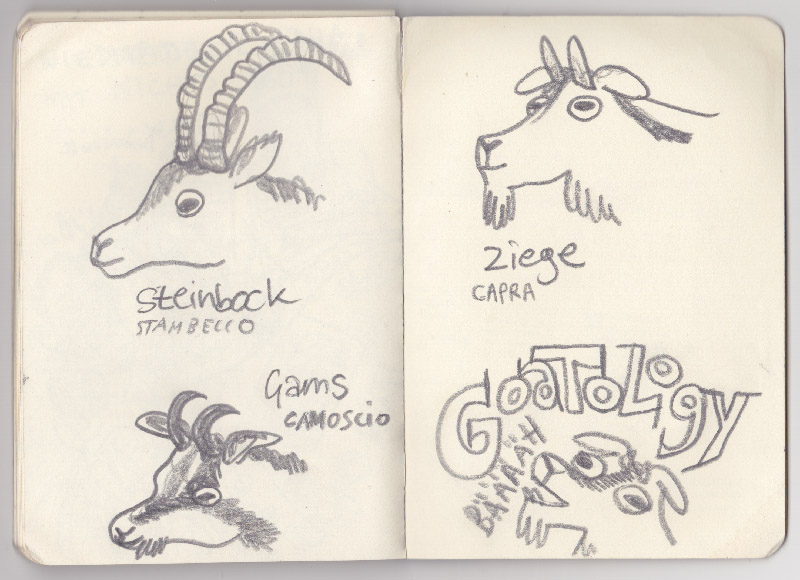 Steinbock
STAMBECCO
Gams
CAMOSCIO
Ziege
CAPRA
GOaTOLOgy
BÄÄÄÄÄH